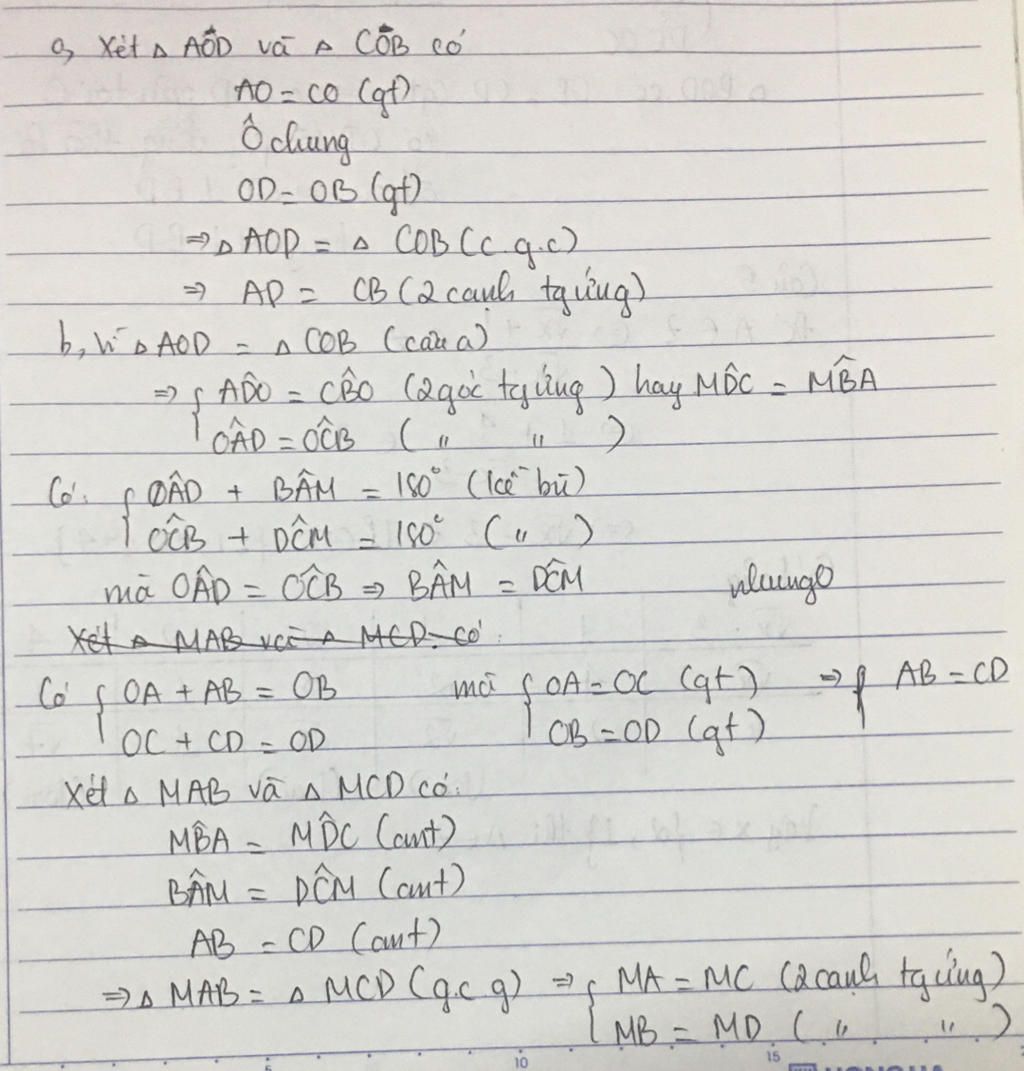 a, Xét △ AÔD và △ CÔB có
AO = CO (gt)
Ô chung
OD = OB (gt)
⇒ △ AOD = △ COB (c.g.c)
⇒ AD = CB (2 cạnh tg ứng)
b, Vì △ AOD = △ COB (câu a)
⇒ { AD̂O = CB̂O (2 góc tg ứng) hay MD̂C = MB̂A
OÂD = OĈB ( " " )
Có: { OÂD + BÂM = 180° (kề bù)
OĈB + DĈM = 180° ( " )
mà OÂD = OĈB ⇒ BÂM = DĈM nhung
Xét △ MAB và △ MCD có:
Có { OA + AB = OB mà { OA = OC (gt) ⇒ { AB = CD
OC + CD = OD OB = OD (gt)
Xét △ MAB và △ MCD có:
MB̂A = MD̂C (cmt)
BÂM = DĈM (cmt)
AB = CD (cmt)
⇒ △ MAB = △ MCD (g.c.g) ⇒ { MA = MC (2 cạnh tg ứng)
MB = MD ( " " )
5 10 15
HONG HA